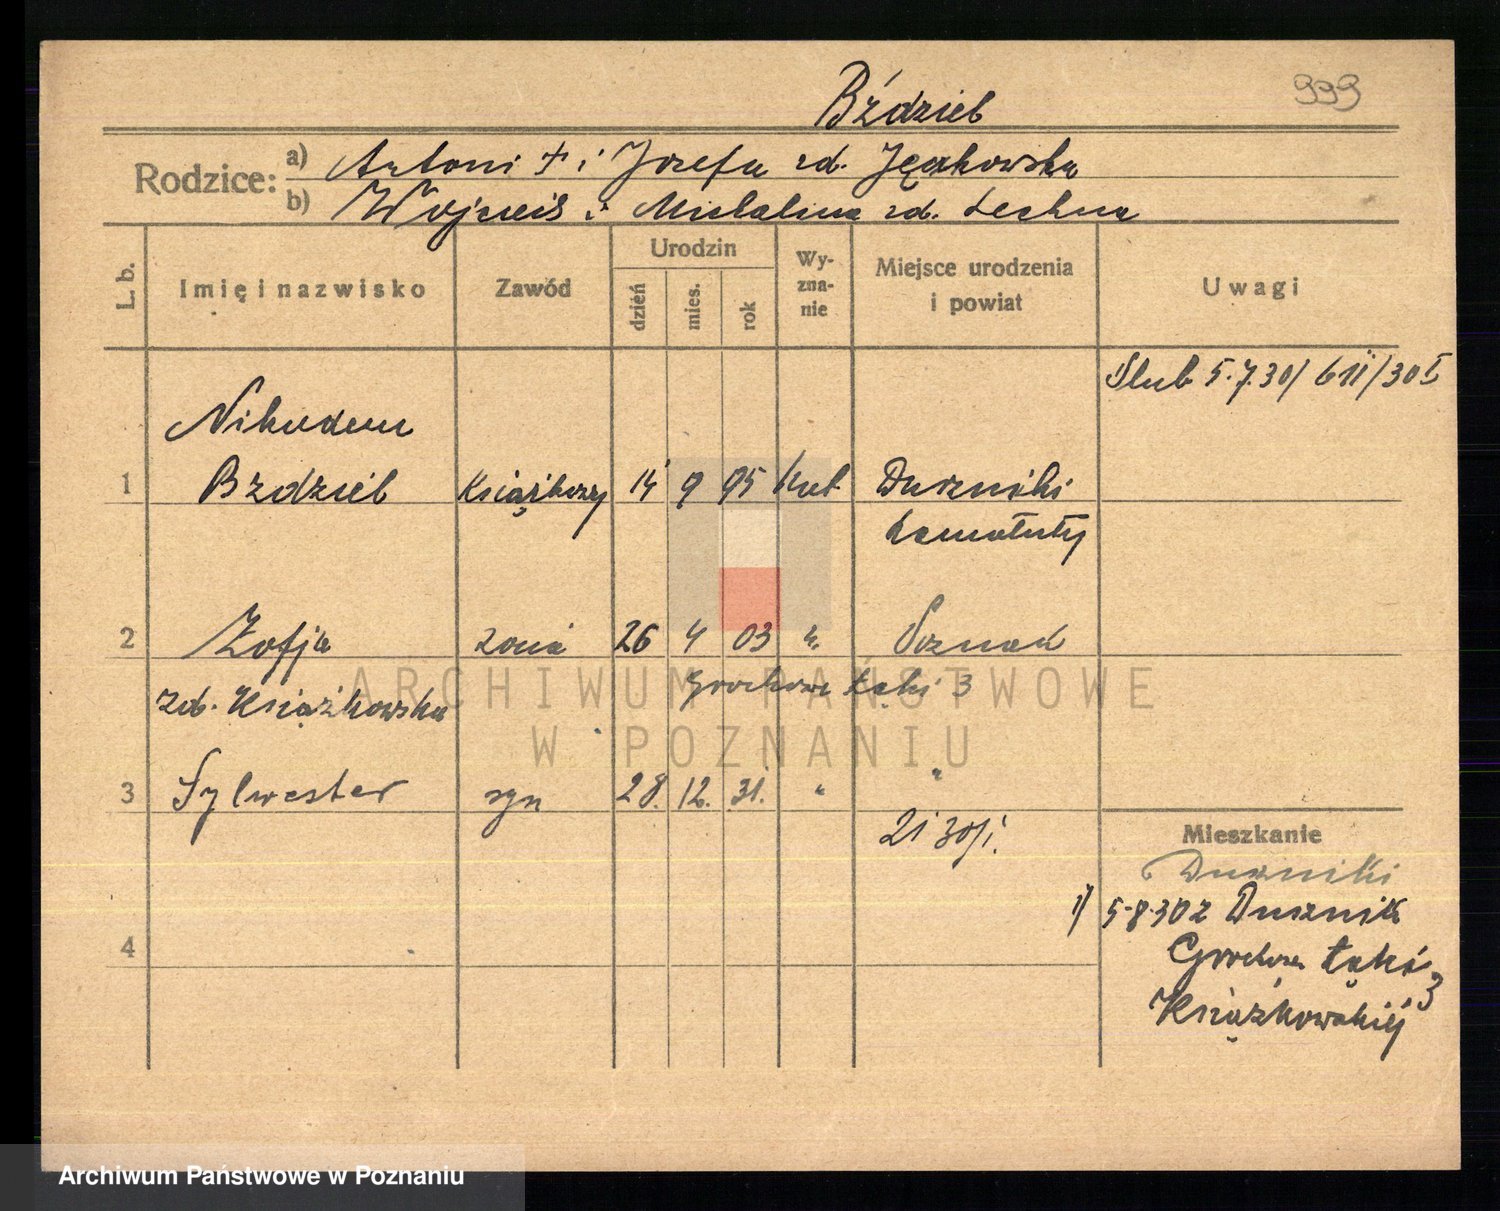 Bździel
999
Rodzice: a) Antoni + i Józefa zd. Jęczkowska
b) Wojciech i Michalina zd. Lechna
L. b.
Imię i nazwisko
Zawód
Urodzin
dzień
mies.
rok
Wy-
zna-
nie
Miejsce urodzenia
i powiat
Uwagi
Ślub 5.7.30/ 611/30 I
Nikodem
1 Bździel książkowy 14 9 95 kat Duszniki
Szamotuły
2 Zofja żona 26 4 03 ". Poznań
zd. Książkowska Grochowe Łąki 3
ARCHIWUM PAŃSTWOWE
W POZNANIU
3 Sylwester syn 28. 12. 31. " "
Mieszkanie
Duszniki
1) 5.8.30 z Dusznik
4
Grochowe Łąki
3
Książkowskiej
Archiwum Państwowe w Poznaniu